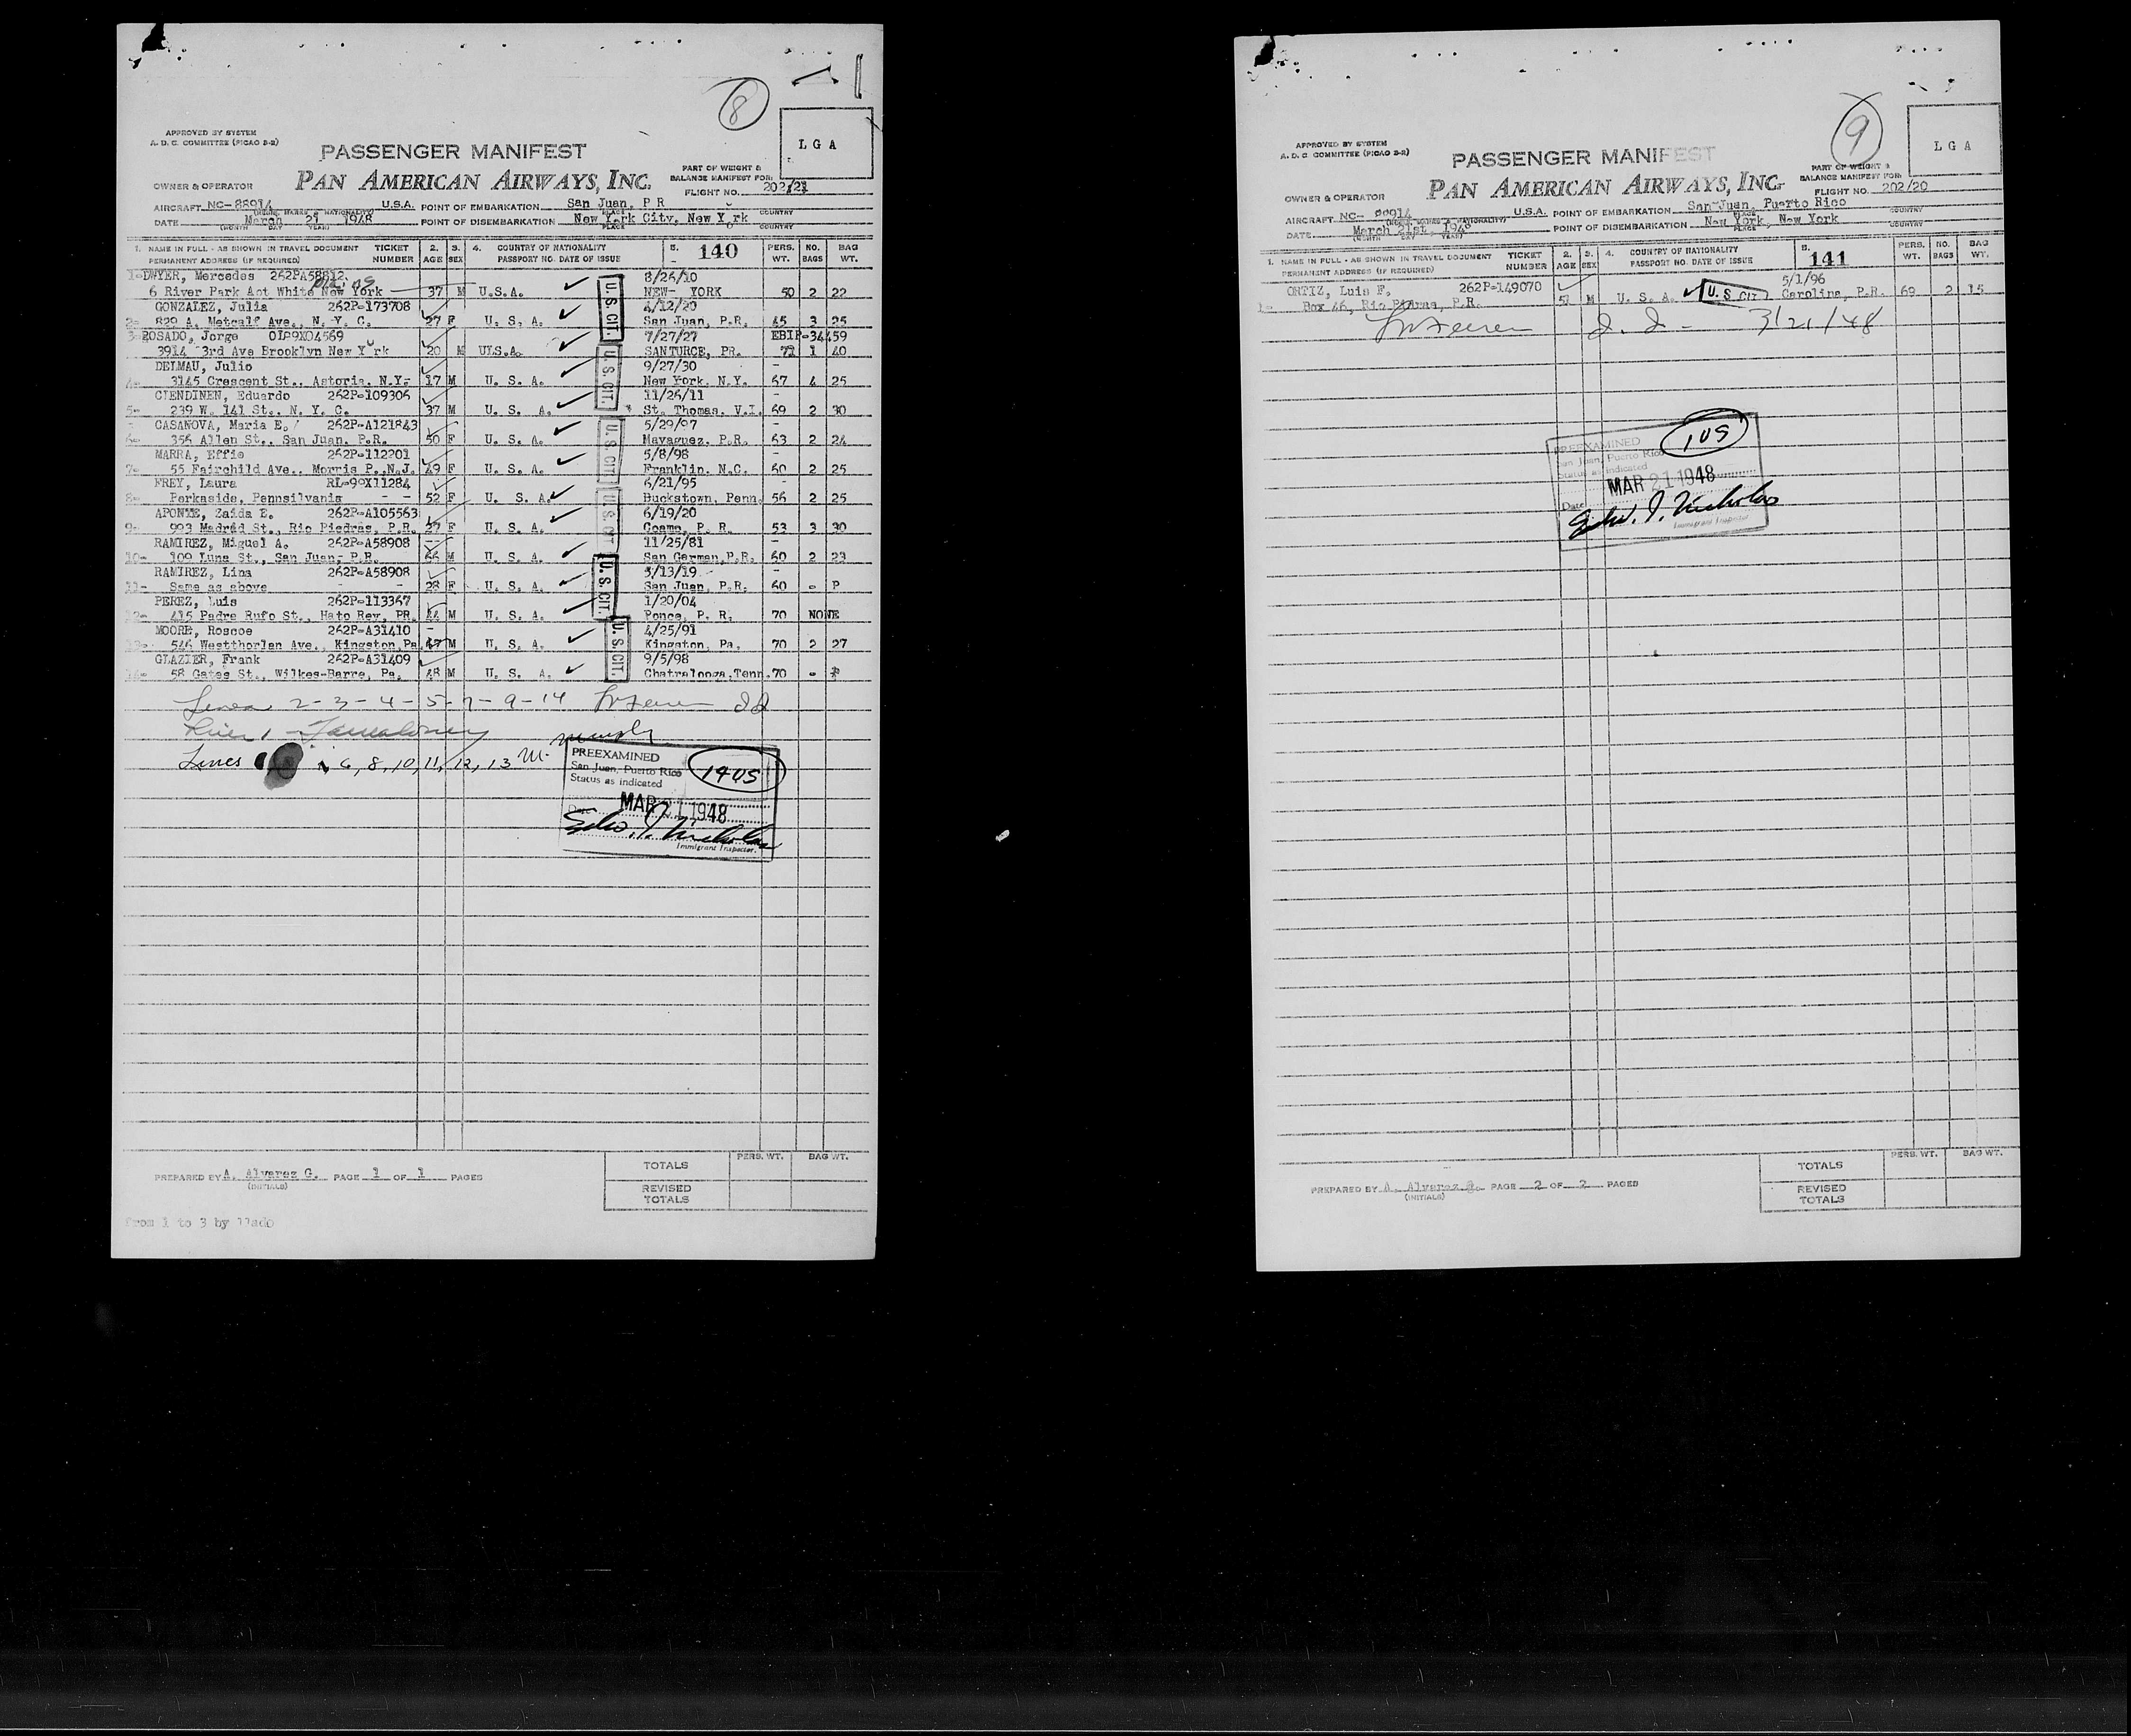 8
LGA
APPROVED BY SYSTEM
A. D. C. COMMITTEE (PICAO B-2)
PASSENGER MANIFEST
PART OF WEIGHT &
BALANCE MANIFEST FOR:
OWNER & OPERATOR PAN AMERICAN AIRWAYS, INC. FLIGHT NO. 202/21
AIRCRAFT NC-88914 U.S.A. POINT OF EMBARKATION San Juan, P R
DATE March 21 1948 POINT OF DISEMBARKATION New York City, New Y rk
(MONTH DAY YEAR) PLACE COUNTRY
1. NAME IN FULL - AS SHOWN IN TRAVEL DOCUMENT TICKET 2. 3. 4. COUNTRY OF NATIONALITY 5. 140 PERS. NO. BAG
PERMANENT ADDRESS (IF REQUIRED) NUMBER AGE SEX PASSPORT NO. DATE OF ISSUE WT. BAGS WT.
1- DWYER, Mercedes 262PA58812 8/26/10
6 River Park Apt White New York 37 M U.S.A. NEW- YORK 50 2 22
GONZALEZ, Julia 262P-173708 4/12/20
2- 829 A. Metcalf Ave., N. Y. C. 27 F U. S. A. San Juan, P.R. 45 3 25
3- ROSADO, Jorge OIP9X04569 7/27/27 EBIP-34459
3914 3rd Ave Brooklyn New York 20 M UIS.A. SANTURCE, PR. 71 1 40
DELMAU, Julio 9/27/30 -
4- 3145 Crescent St., Astoria, N.Y- 17 M U. S. A. New York, N.Y. 67 4 25
CIENDINEN, Eduardo 262P-109306 11/26/11 -
5- 239 W. 141 St., N. Y. C. 37 M U. S. A. St. Thomas, V.I. 69 2 30
CASANOVA, Maria E. 262P-A121843 5/29/97 -
6- 356 Allen St., San Juan, P.R. 50 F U. S. A. Mayaguez, P.R. 63 2 24
MARRA, Effie 262P-112201 5/8/98 -
7- 55 Fairchild Ave., Morris P.,N.J. 49 F U. S. A. Franklin, N.C. 60 2 25
FREY, Laura RL-90X11284 6/21/95 -
8- Perkaside, Pennsilvania - - 52 F U. S. A. Buckstown, Penn. 56 2 25
APONTE, Zaida E. 262P-A105563 6/19/20
9- 993 Madrid St., Rio Piedras, P.R. 27 F U. S. A. Coamo, P. R. 53 3 30
RAMIREZ, Miguel A. 262P-A58908 11/25/81 -
10- 109 Luna St., San Juan, P.R. 66 M U. S. A. San German,P.R. 60 2 23
RAMIREZ, Lina 262P-A58908 3/13/19 -
11- Same as above - - 28 F U. S. A. San Juan, P.R. 60 - P
PEREZ, Luis 262P-113367 1/20/04
12- 415 Padre Rufo St., Hato Rey, PR. 44 M U. S. A. Ponce, P. R. 70 NONE
MOORE, Roscoe 262P-A31410 - 4/25/91
13- 546 Westthorlan Ave., Kingston,Pa. 47 M U. S. A. Kingston, Pa. 70 2 27
GLAZIER, Frank 262P-A31409 9/5/98
14- 58 Gates St., Wilkes-Barre, Pa. 48 M U. S. A. Chatralooga,Tenn. 70 -
U.S. CIT.
U.S. CIT.
U.S. CIT.
U.S. CIT
U.S. CIT.
U.S. CIT.
Lines 2-3-4-5-7-9-14
Lines 6, 8, 10, 11, 12, 13
PREEXAMINED
San Juan, Puerto Rico
Status as indicated
14US
Date MAR 21 1948
Edw. J. Nicholas
Immigrant Inspector.
TOTALS PERS. WT. BAG WT.
PREPARED BY A. Alvarez G. PAGE 1 OF 1 PAGES
(INITIALS)
REVISED
TOTALS
from 1 to 3 by llado
9
LGA
APPROVED BY SYSTEM
A. D. C. COMMITTEE (PICAO B-2)
PASSENGER MANIFEST
PART OF WEIGHT &
BALANCE MANIFEST FOR:
OWNER & OPERATOR PAN AMERICAN AIRWAYS, INC. FLIGHT NO. 202/20
AIRCRAFT NC- 88914 U.S.A. POINT OF EMBARKATION San Juan, Puerto Rico
DATE March 21st, 1948 POINT OF DISEMBARKATION New York, New York
(MONTH DAY YEAR) PLACE COUNTRY
1. NAME IN FULL - AS SHOWN IN TRAVEL DOCUMENT TICKET 2. 3. 4. COUNTRY OF NATIONALITY 5. 141 PERS. NO. BAG
PERMANENT ADDRESS (IF REQUIRED) NUMBER AGE SEX PASSPORT NO. DATE OF ISSUE WT. BAGS WT.
ORTIZ, Luis F. 262P-149070 5/1/96
1- Box 46, Rio Piedras, P.R. 51 M U. S. A. U. S. CIT. Carolina, P.R. 69 2 15
3/21/48
PREEXAMINED
San Juan, Puerto Rico
Status as indicated
1US
Date MAR 21 1948
Edw. J. Nicholas
Immigrant Inspector
TOTALS PERS. WT. BAG WT.
PREPARED BY A. Alvarez G. PAGE 2 OF 2 PAGES
(INITIALS)
REVISED
TOTALS